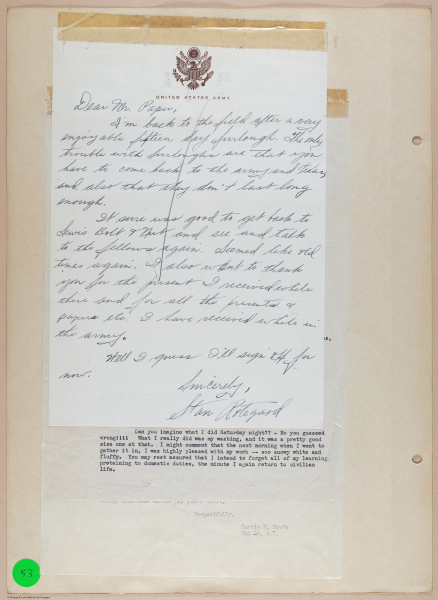 UNITED STATES ARMY
Dear Mr. Paper,
I'm back to the field after a very
enjoyable fifteen day furlough. The only
trouble with furloughs are that you
have to come back to the army and
and also that they don't last long
enough.
It sure was good to get back to
Lewis Bolt & Nut and see and talk
to the fellows again. Seemed like old
times again. I also want to thank
you for the present I received while
there and for all the presents &
papers etc. I have received while in
the army.
Well I guess I'll sign off for
now.
Sincerely,
Stan
Can you imagine what I did Saturday night?? - No you guessed
wrong!!!! What I really did was my washing, and it was a pretty good
size one at that. I might comment that the next morning when I went to
gather it in, I was highly pleased with my work -- soo snowy white and
fluffy. You may rest assured that I intend to forget all of my learning
pretaining to domestic duties, the minute I again return to civilian
life.
Respectfully,
53